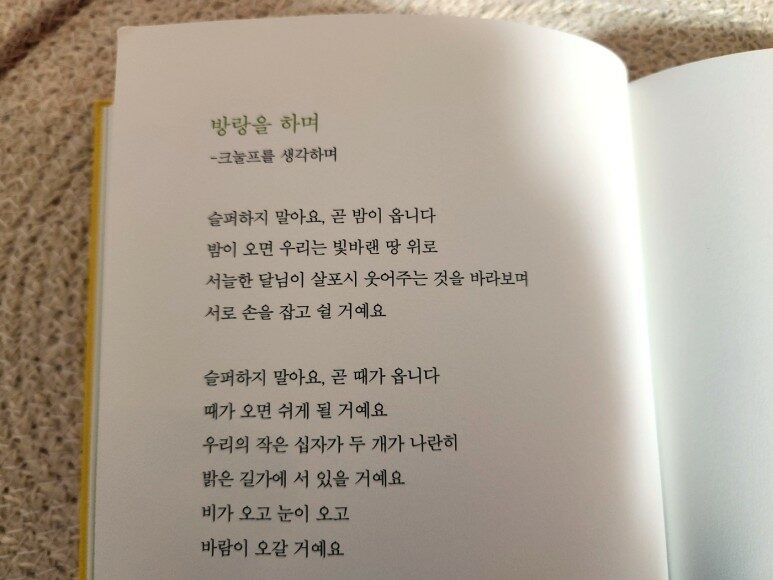 방랑을 하며
-크눌프를 생각하며
슬퍼하지 말아요, 곧 밤이 옵니다
밤이 오면 우리는 빛바랜 땅 위로
서늘한 달님이 살포시 웃어주는 것을 바라보며
서로 손을 잡고 쉴 거예요
슬퍼하지 말아요, 곧 때가 옵니다
때가 오면 쉬게 될 거예요
우리의 작은 십자가 두 개가 나란히
밝은 길가에 서 있을 거예요
비가 오고 눈이 오고
바람이 오갈 거예요